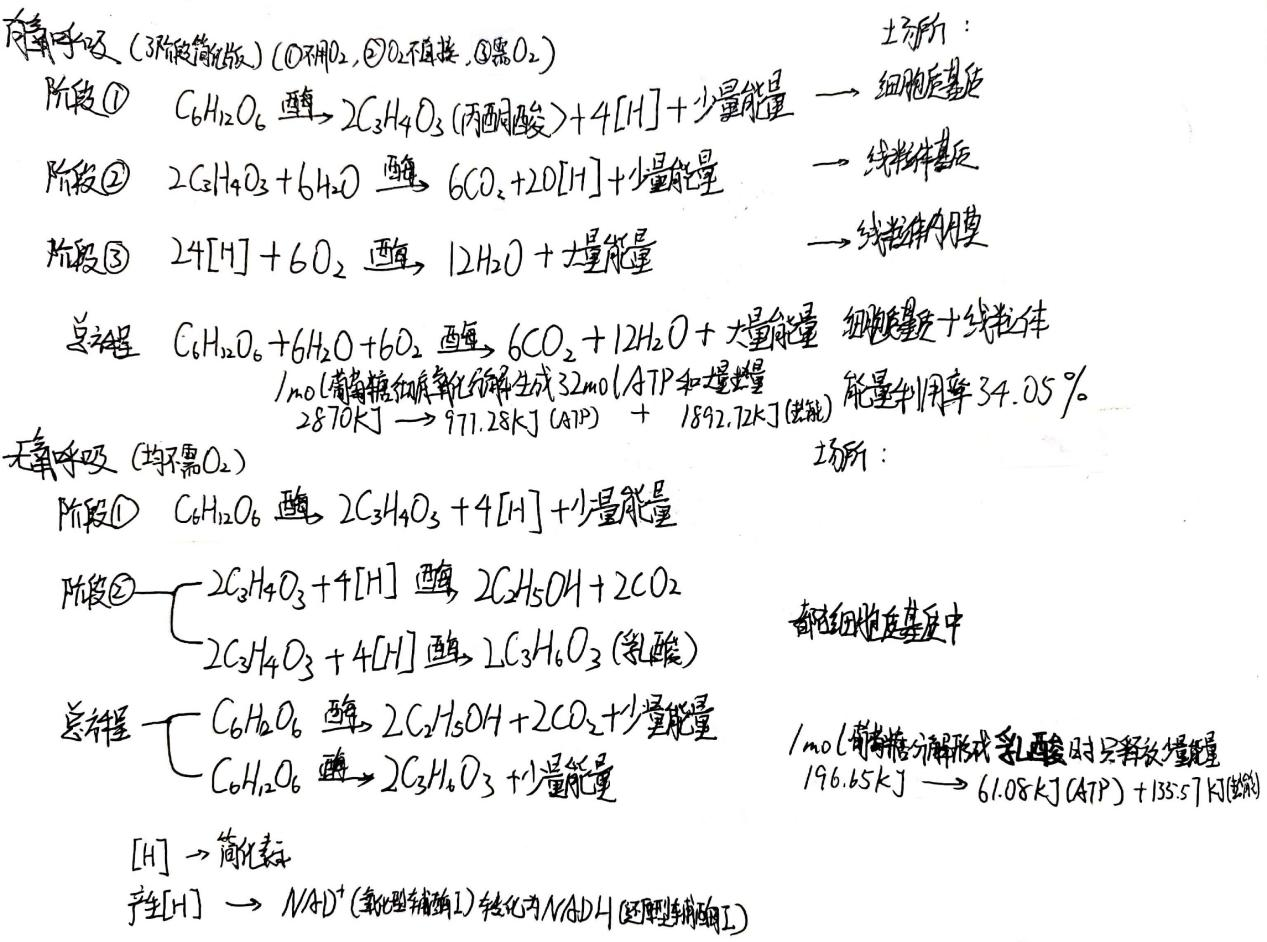 有氧呼吸 (3阶段简化版) (①不用O₂,②O₂不直接,③需O₂) 场所:
阶段① C₆H₁₂O₆ 酶→ 2C₃H₄O₃(丙酮酸)+4[H]+少量能量 → 细胞质基质
阶段② 2C₃H₄O₃+6H₂O 酶→ 6CO₂+20[H]+少量能量 → 线粒体基质
阶段③ 24[H]+6O₂ 酶→ 12H₂O+大量能量 → 线粒体内膜
总方程 C₆H₁₂O₆+6H₂O+6O₂ 酶→ 6CO₂+12H₂O+大量能量 细胞质基质+线粒体
1mol葡萄糖彻底氧化分解生成32molATP和大量热量
2870KJ → 977.28KJ(ATP) + 1892.72KJ(热能) 能量利用率34.05%
无氧呼吸 (均不需O₂) 场所:
阶段① C₆H₁₂O₆ 酶→ 2C₃H₄O₃+4[H]+少量能量
阶段② 2C₃H₄O₃+4[H] 酶→ 2C₂H₅OH+2CO₂
都在细胞质基质中
2C₃H₄O₃+4[H] 酶→ 2C₃H₆O₃(乳酸)
总方程 C₆H₂O₆ 酶→ 2C₂H₅OH+2CO₂+少量能量
C₆H₁₂O₆ 酶→ 2C₃H₆O₃+少量能量
1mol葡萄糖分解形成乳酸时只释放少量能量
196.65KJ → 61.08KJ(ATP)+135.57KJ(热能)
[H] → 简化表示
产生[H] → NAD⁺(氧化型辅酶I)转化为NADH(还原型辅酶I)